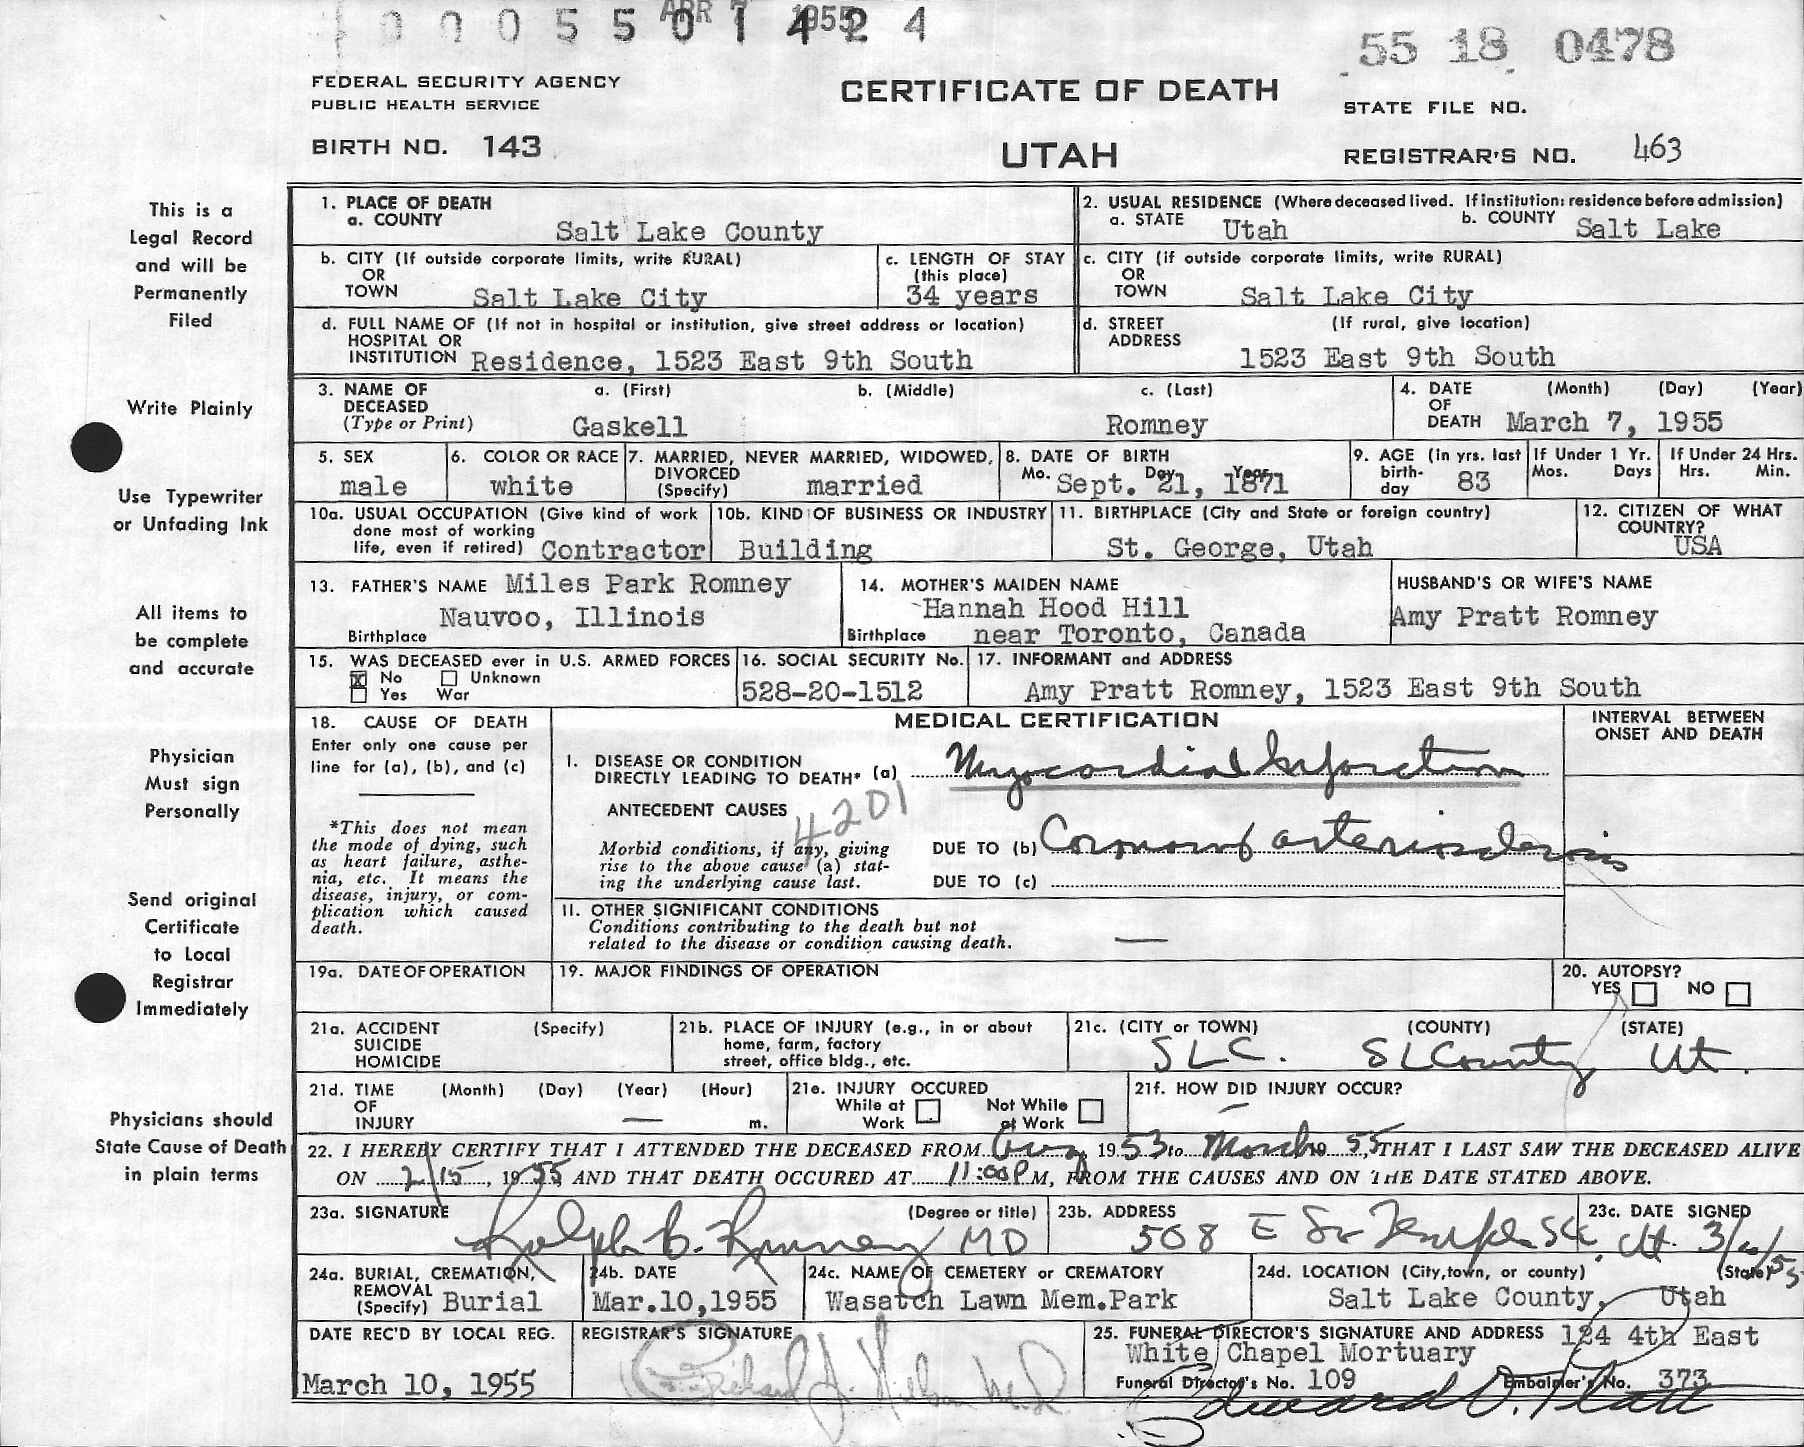 0 0 0 5 5 0 1 4 2 4
APR 7 1955
55 18 0478
FEDERAL SECURITY AGENCY
PUBLIC HEALTH SERVICE
BIRTH NO. 143
CERTIFICATE OF DEATH
UTAH
STATE FILE NO.
REGISTRAR'S NO. 463
This is a
Legal Record
and will be
Permanently
Filed
Write Plainly
Use Typewriter
or Unfading Ink
All items to
be complete
and accurate
Physician
Must sign
Personally
Send original
Certificate
to Local
Registrar
Immediately
Physicians should
State Cause of Death
in plain terms
1. PLACE OF DEATH
a. COUNTY Salt Lake County
2. USUAL RESIDENCE (Where deceased lived. If institution: residence before admission)
a. STATE Utah b. COUNTY Salt Lake
b. CITY (If outside corporate limits, write RURAL)
OR
TOWN Salt Lake City
c. LENGTH OF STAY
(this place)
34 years
c. CITY (if outside corporate limits, write RURAL)
OR
TOWN Salt Lake City
d. FULL NAME OF (If not in hospital or institution, give street address or location)
HOSPITAL OR
INSTITUTION Residence, 1523 East 9th South
d. STREET (If rural, give location)
ADDRESS
1523 East 9th South
3. NAME OF a. (First) b. (Middle) c. (Last)
DECEASED
(Type or Print) Gaskell Romney
4. DATE (Month) (Day) (Year)
OF
DEATH March 7, 1955
5. SEX
male
6. COLOR OR RACE
white
7. MARRIED, NEVER MARRIED, WIDOWED,
DIVORCED
(Specify) married
8. DATE OF BIRTH
Mo. Day Year
Sept. 21, 1871
9. AGE (in yrs. last
birth-
day 83
If Under 1 Yr.
Mos. Days
If Under 24 Hrs.
Hrs. Min.
10a. USUAL OCCUPATION (Give kind of work
done most of working
life, even if retired) Contractor
10b. KIND OF BUSINESS OR INDUSTRY
Building
11. BIRTHPLACE (City and State or foreign country)
St. George, Utah
12. CITIZEN OF WHAT
COUNTRY?
USA
13. FATHER'S NAME Miles Park Romney
Nauvoo, Illinois
Birthplace
14. MOTHER'S MAIDEN NAME
Hannah Hood Hill
Birthplace near Toronto, Canada
HUSBAND'S OR WIFE'S NAME
Amy Pratt Romney
15. WAS DECEASED ever in U.S. ARMED FORCES
x No Unknown
Yes War
16. SOCIAL SECURITY No.
528-20-1512
17. INFORMANT and ADDRESS
Amy Pratt Romney, 1523 East 9th South
18. CAUSE OF DEATH
Enter only one cause per
line for (a), (b), and (c)
*This does not mean
the mode of dying, such
as heart failure, asthe-
nia, etc. It means the
disease, injury, or com-
plication which caused
death.
MEDICAL CERTIFICATION
INTERVAL BETWEEN
ONSET AND DEATH
I. DISEASE OR CONDITION
DIRECTLY LEADING TO DEATH* (a) Myocardial Infarction
ANTECEDENT CAUSES
4201
Morbid conditions, if any, giving
rise to the above cause (a) stat-
ing the underlying cause last.
DUE TO (b) Coronary arteriosclerosis
DUE TO (c)
II. OTHER SIGNIFICANT CONDITIONS
Conditions contributing to the death but not
related to the disease or condition causing death. —
19a. DATE OF OPERATION
19. MAJOR FINDINGS OF OPERATION
20. AUTOPSY?
YES NO
21a. ACCIDENT (Specify)
SUICIDE
HOMICIDE
21b. PLACE OF INJURY (e.g., in or about
home, farm, factory
street, office bldg., etc.
21c. (CITY or TOWN) (COUNTY) (STATE)
SLC. SL County Ut.
21d. TIME (Month) (Day) (Year) (Hour)
OF
INJURY — m.
21e. INJURY OCCURED
While at Not While
Work at Work
21f. HOW DID INJURY OCCUR?
—
22. I HEREBY CERTIFY THAT I ATTENDED THE DECEASED FROM 1953 to March 1955, THAT I LAST SAW THE DECEASED ALIVE
ON 2/15, 1955 AND THAT DEATH OCCURED AT 11:00P M, FROM THE CAUSES AND ON THE DATE STATED ABOVE.
23a. SIGNATURE (Degree or title)
Ralph C. Romney MD
23b. ADDRESS
508 E So Temple SLC. Ut.
23c. DATE SIGNED
24a. BURIAL, CREMATION,
REMOVAL
(Specify) Burial
24b. DATE
Mar.10,1955
24c. NAME OF CEMETERY or CREMATORY
Wasatch Lawn Mem.Park
24d. LOCATION (City,town, or county) (State)
Salt Lake County, Utah
DATE REC'D BY LOCAL REG.
March 10, 1955
REGISTRAR'S SIGNATURE
25. FUNERAL DIRECTOR'S SIGNATURE AND ADDRESS 124 4th East
White Chapel Mortuary
Funeral Director's No. 109 Embalmer's No. 373